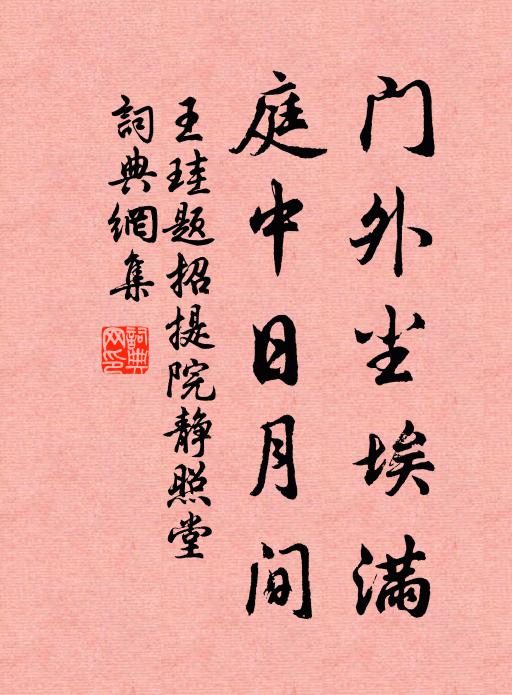 门外尘埃满
庭中日月间
王珪题招提院静照堂
詞典網集
詞典网印